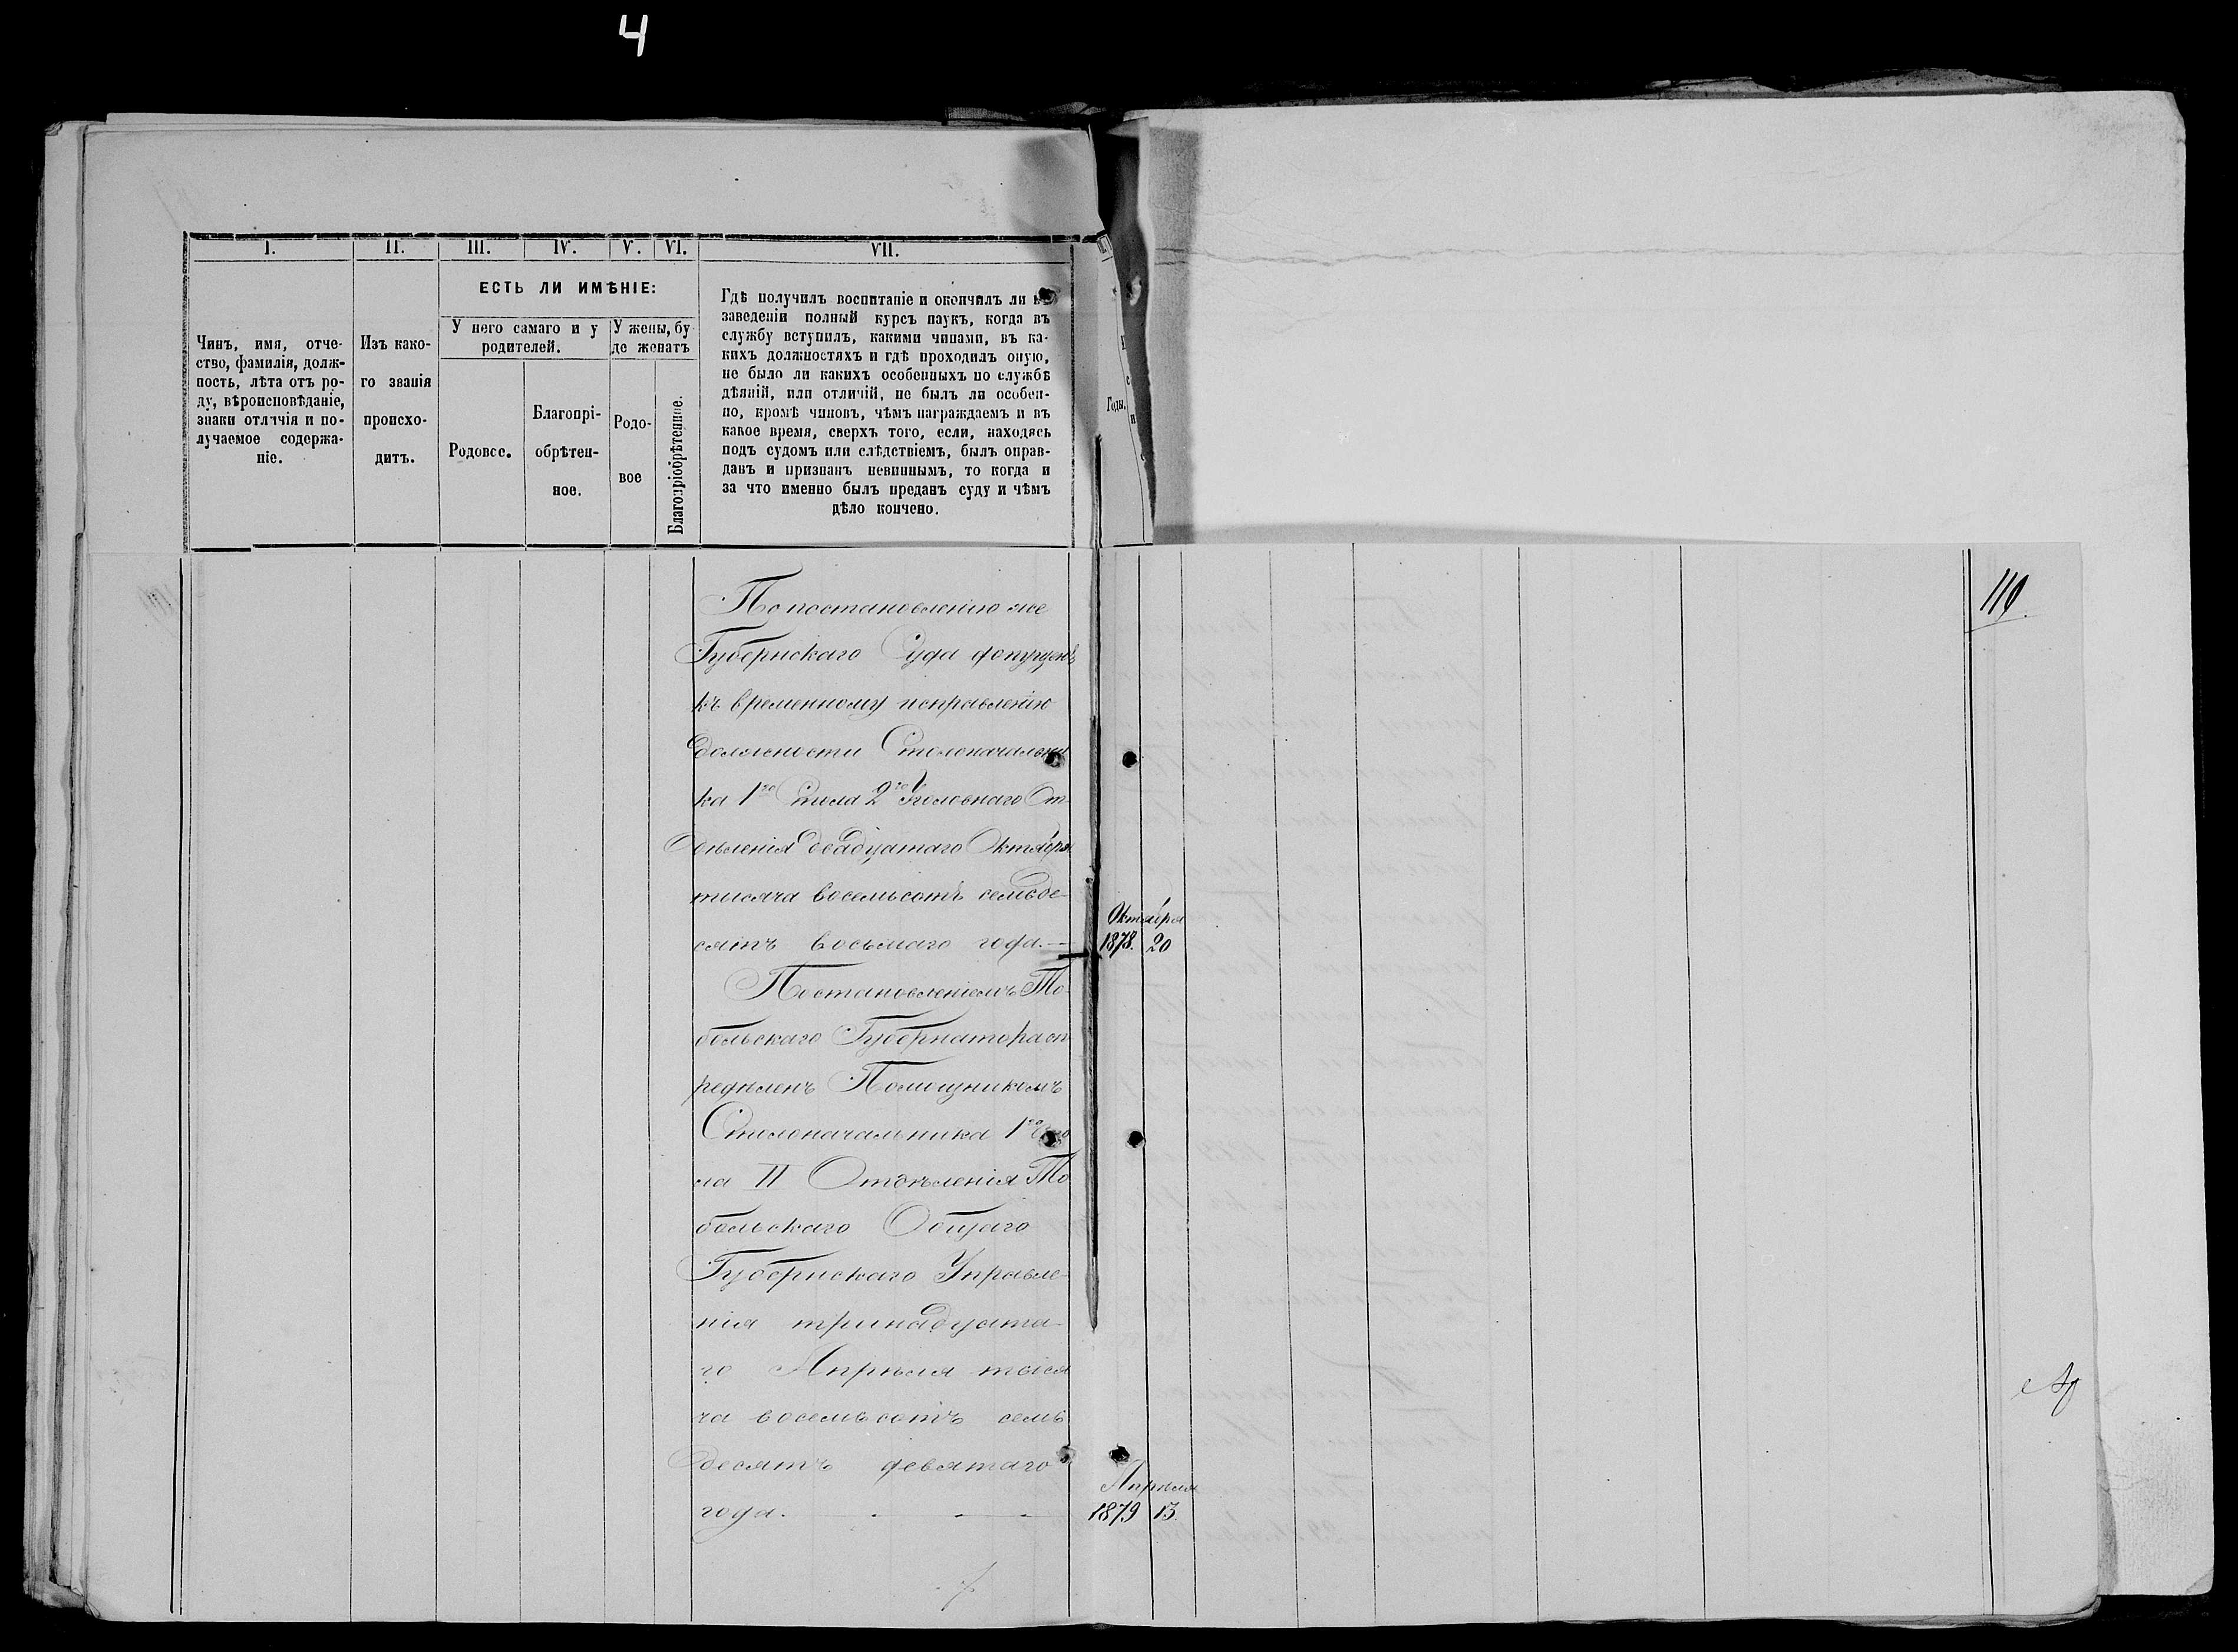 4
I.
II.
III.
IV.
V.
VI.
VII.
ЕСТЬ ЛИ ИМѢНІЕ:
У него самаго и у
родителей.
У жены, бу
де женатъ
Чинъ, имя, отче-
ство, фамилія, долж-
ность, лѣта отъ ро-
ду, вѣроисповѣданіе,
знаки отличія и по-
лучаемое содержа-
ніе.
Изъ како-
го званія
происхо-
дитъ.
Родовое.
Благопрі-
обрѣтен-
ное.
Родо-
вое
Благопріобрѣтенное.
Гдѣ получилъ воспитаніе и окончилъ ли въ
заведеніи полный курсъ наукъ, когда въ
службу вступилъ, какими чинами, въ ка-
кихъ должностяхъ и гдѣ проходилъ оную,
не было ли какихъ особенныхъ по службѣ
дѣяній, или отличій, не былъ ли особен-
но, кромѣ чиновъ, чѣмъ награждаемъ и въ
какое время, сверхъ того, если, находясь
подъ судомъ или слѣдствіемъ, былъ оправ-
данъ и признанъ невиннымъ, то когда и
за что именно былъ преданъ суду и чѣмъ
дѣло кончено.
Годы.
По постановленію же
Губернскаго Суда допущенъ
къ временному исправленію
должности Столоначальни
ка 1го Стола 2го Уголовнаго От
дѣленія двадцатаго Октября
тысяча восемьсотъ семьде-
сятъ восьмаго года.—
Октября
1878. 20
Постановленіемъ То-
больскаго Губернатора оп
редѣленъ Помощникомъ
Столоначальника 1го Сто
ла II Отдѣленія То
больскаго Общаго
Губернскаго Управле-
нія тринадцата-
го Апрѣля тыся
ча восемьсотъ семь
десятъ девятаго
года.
Апрѣля
1879 13.
110.